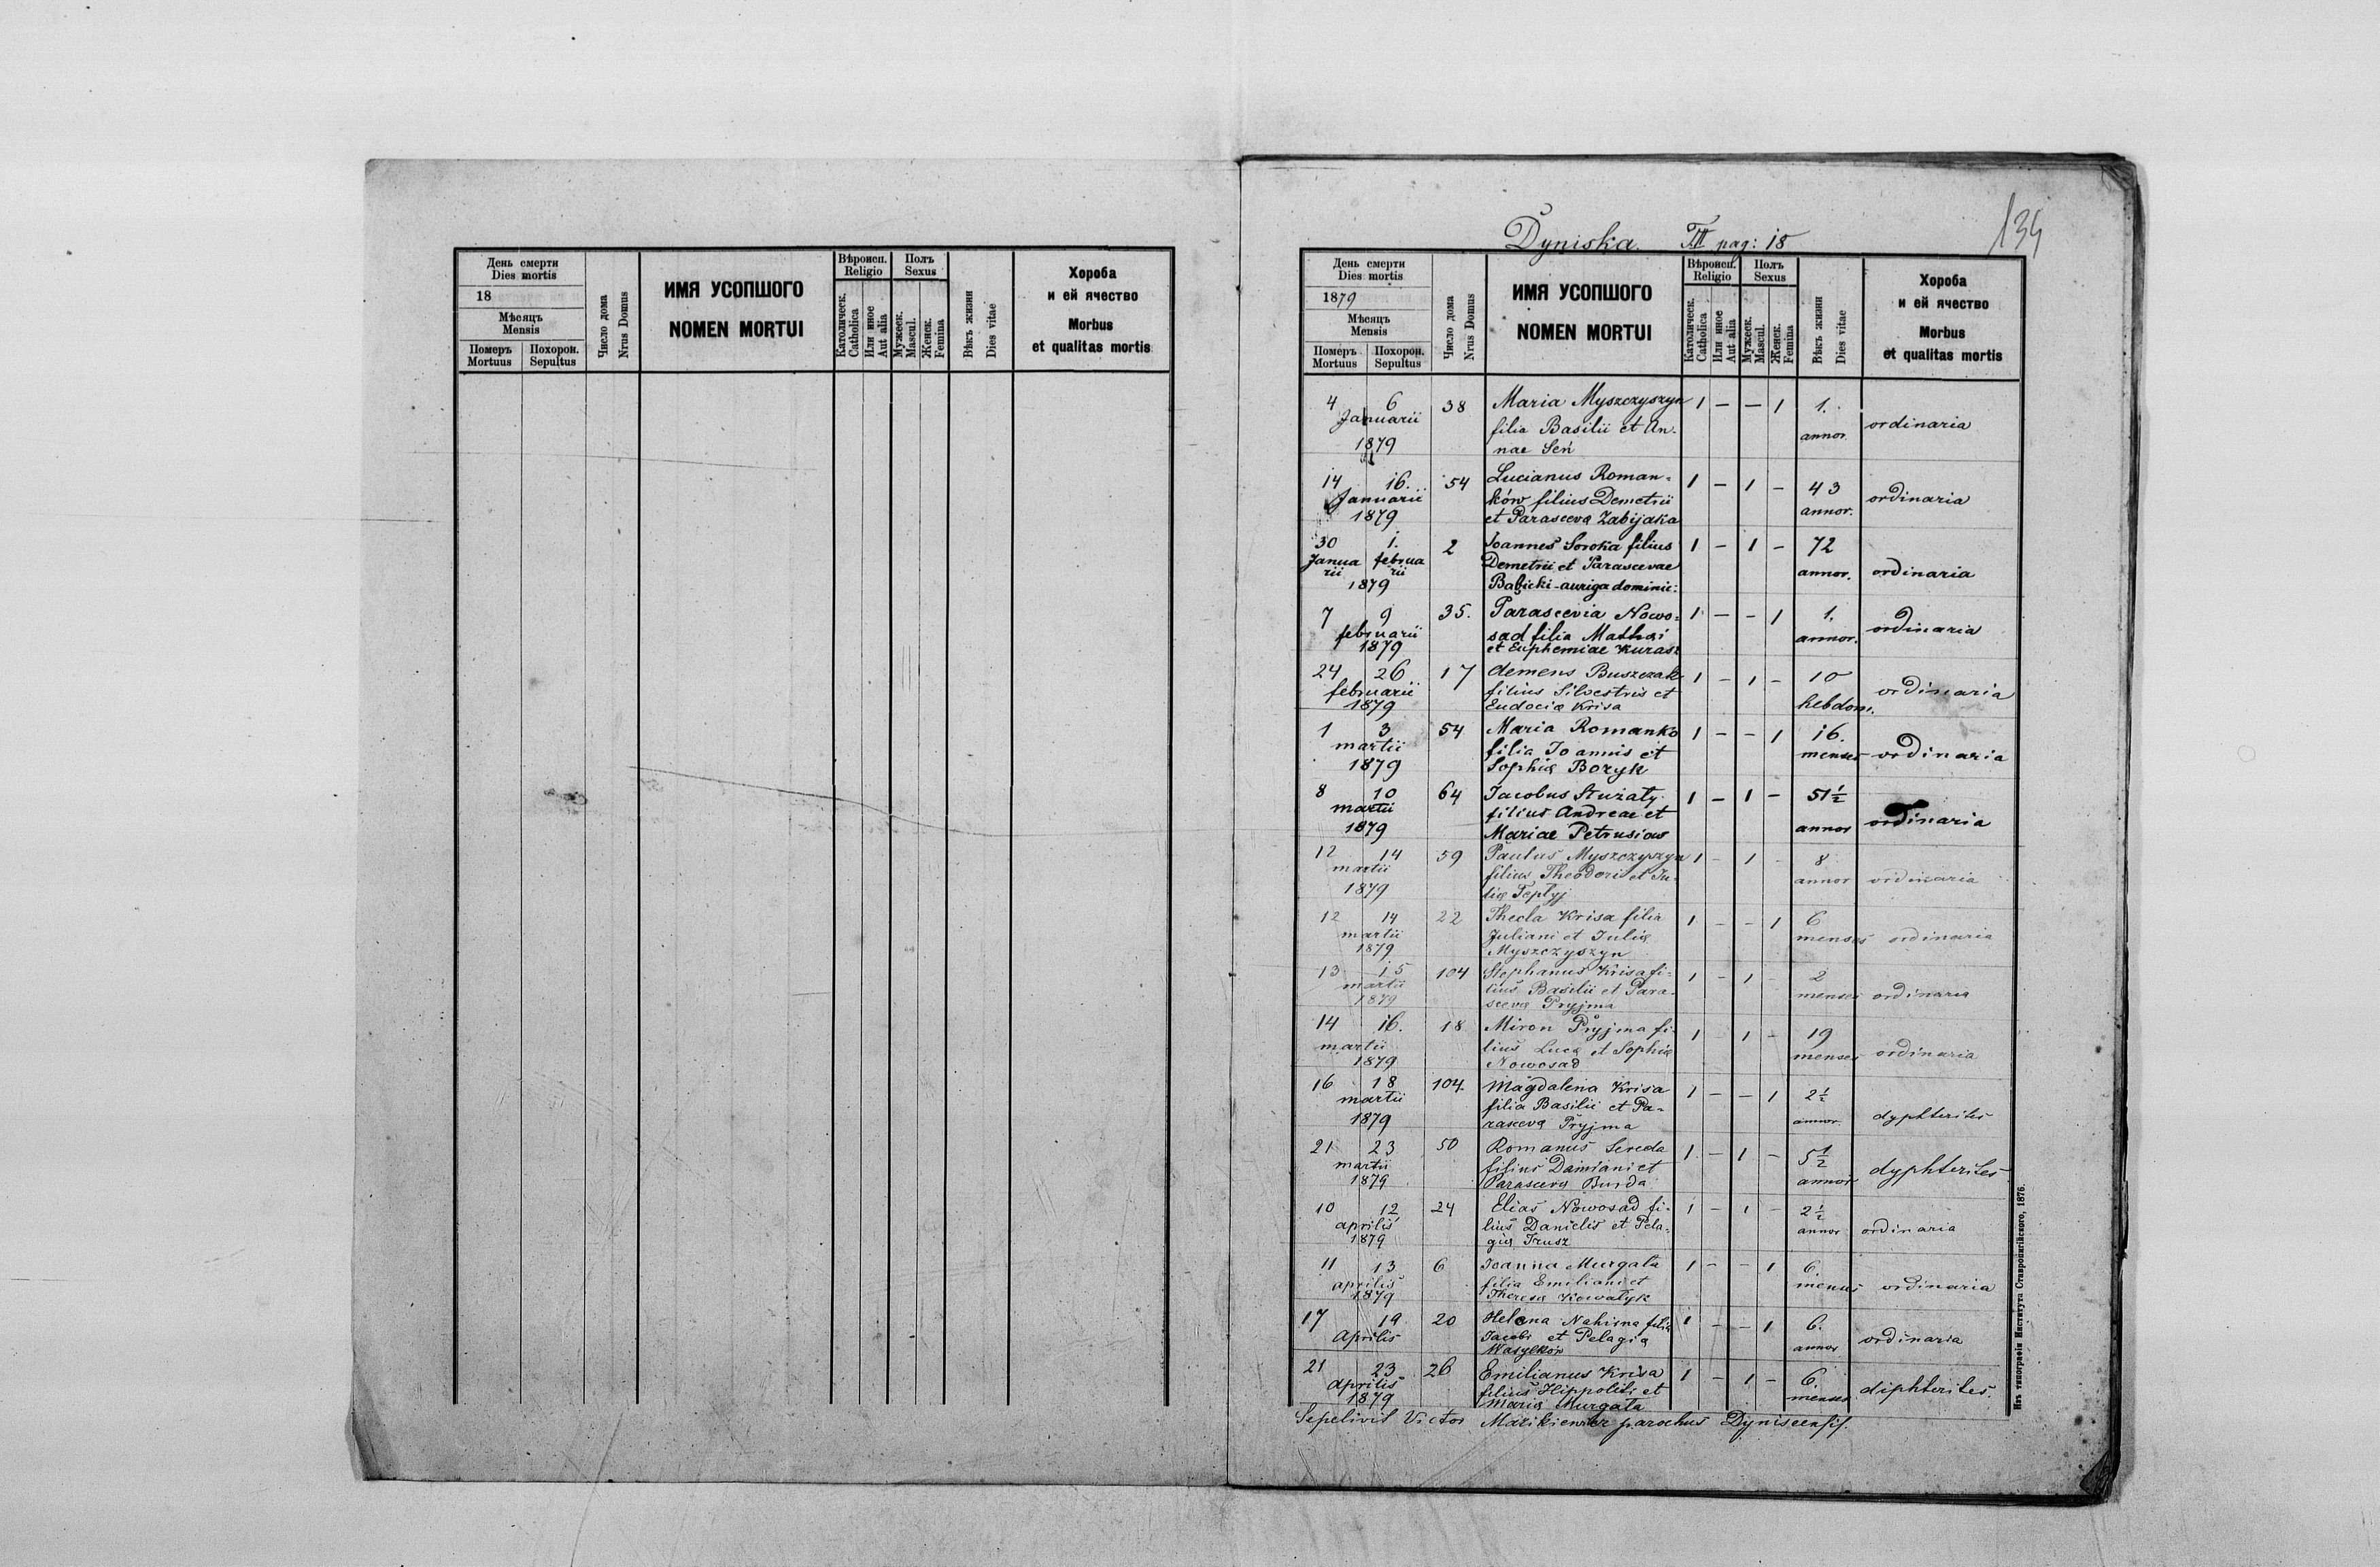 День смерти
Dies mortis
18
Мѣсяцъ
Mensis
Померъ
Mortuus
Похорон.
Sepultus
Число дома
Nrus Domus
ИМЯ УСОПШОГО
NOMEN MORTUI
Вѣроисп.
Religio
Католическ.
Catholica
Или иное
Aut alia
Полъ
Sexus
Мужеск.
Mascul.
Женск.
Femina
Вѣкъ жизни
Dies vitae
Хороба
и ей ячество
Morbus
et qualitas mortis
Dyniska. T.III pag: 18
134
День смерти
Dies mortis
1879
Мѣсяцъ
Mensis
Померъ
Mortuus
Похорон.
Sepultus
Число дома
Nrus Domus
ИМЯ УСОПШОГО
NOMEN MORTUI
Вѣроисп.
Religio
Католическ.
Catholica
Или иное
Aut alia
Полъ
Sexus
Мужеск.
Mascul.
Женск.
Femina
Вѣкъ жизни
Dies vitae
Хороба
и ей ячество
Morbus
et qualitas mortis
4 6 38 Maria Myszczyszyn 1 – – 1 1.
Januarii filia Basilii et An- annor. ordinaria
1879 nae Seń
14 16. 54 Lucianus Roman- 1 – 1 – 43
Januarii ków filius Demetrii annor. ordinaria
1879 et Parascevą Zabijaka
30 1. 2 Joannes Soroka filius 1 – 1 – 72
Janua februa Demetrii et Parascevae annor. ordinaria
rii rii
1879 Babicki - auriga dominic:
7 9 35. Parascevia Nowo- 1 – – 1 1.
februarii sad filia Mathai annor. ordinaria
1879 et Euphemiae Kurasz
24 26 17 Clemens Buszczak 1 – 1 – 10
februarii filius Silvestris et hebdom. ordinaria
1879 Eudocią Krisa
1 3 54 Maria Romanko 1 – – 1 16.
martii filia Joannis et menses ordinaria
1879 Sophią Bozyk
8 10 64 Jacobus Stużaty 1 – 1 – 51 1/2
martii filius Andreae et annor ordinaria
1879 Mariae Petrusiow
12 14 59 Paulus Myszczyszyn 1 – 1 – 8
martii filius Theodori et Ju- annor ordinaria
1879 lią Teptyj
12 14 22 Thecla Krisa filia 1 – – 1 6
martii Juliani et Julią menses ordinaria
1879 Myszczyszyn
13 15 104 Stephanus Krisa fi- 1 – 1 – 2
martii lius Basilii et Para- menses ordinaria
1879 scevą Pryjma
14 16. 18 Miron Pryjma fi- 1 – 1 – 19
martii lius Lucą et Sophią menses ordinaria
1879 Nowosad
16 18 104. Magdalena Krisa 1 – – 1 2 1/2
martii filia Basilii et Pa- annor. dyphterites
1879 rascevą Pryjma
21 23 50 Romanus Sereda 1 – 1 – 5 1/2
martii filius Damiani et annor dyphterites
1879 Parascevą Burda
10 12 24 Elias Nowosad fi- 1 – 1 – 2 1/2
aprilis lius Danielis et Pela- annor ordinaria
1879 gią Trusz
11 13 6 Joanna Murgata 1 – – 1 6.
aprilis filia Emiliani et menses ordinaria
1879 Theresą Kowatyk
17 19 20 Helena Nahirna filia 1 – – 1 6.
Aprilis Jacobi et Pelagią annor ordinaria
Wasylków
21 23 26 Emilianus Krisa 1 – 1 – 6.
Aprilis filius Hippoliti et menses diphterites.
1879 Marią Murgata
Sepelivit Victor Mazikiewicz parochus Dyniscensis.
Изъ типографіи Института Ставропигійского, 1876.